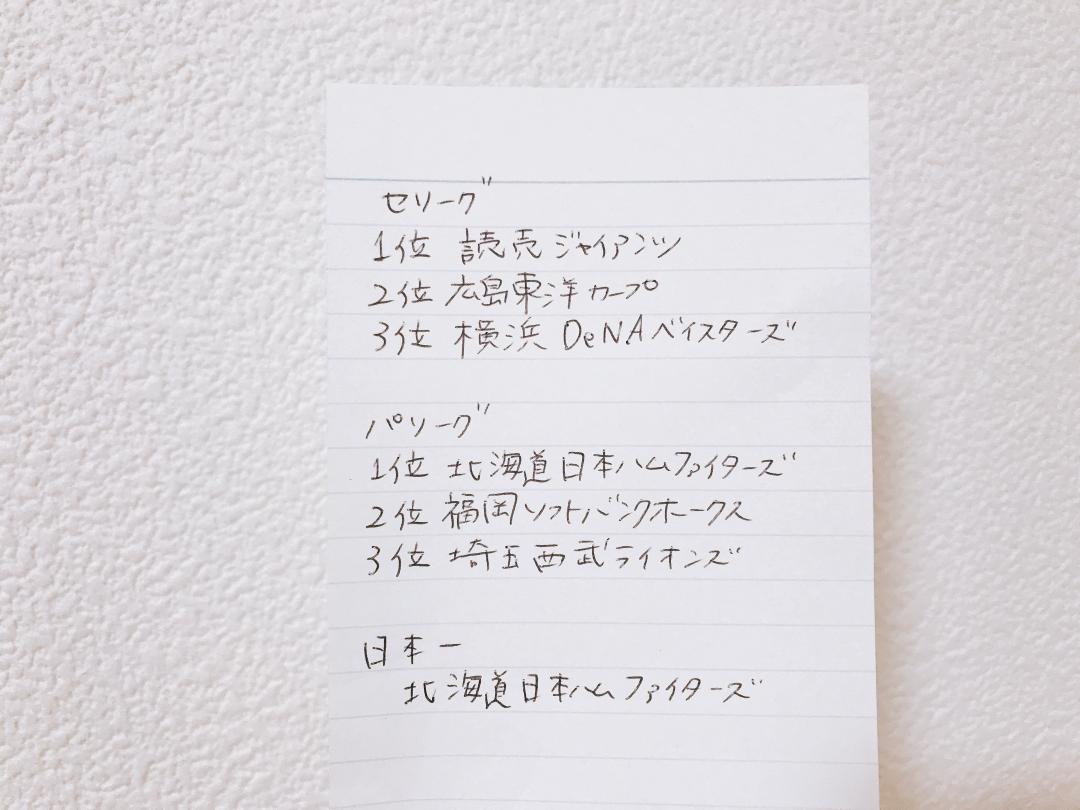 セリーグ
1位 読売ジャイアンツ
2位 広島東洋カープ
3位 横浜DeNAベイスターズ
パリーグ
1位 北海道日本ハムファイターズ
2位 福岡ソフトバンクホークス
3位 埼玉西武ライオンズ
日本一
北海道日本ハムファイターズ